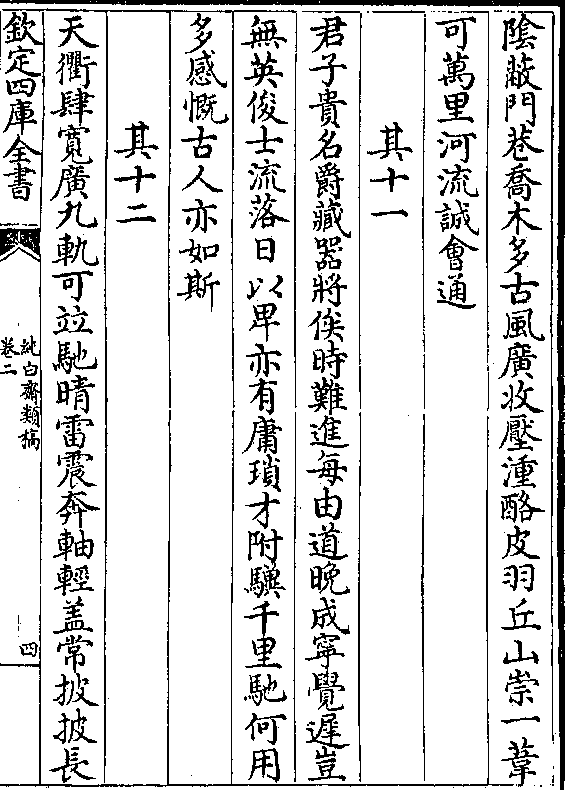 陰蔽門巷喬木多古風廣收壓湩酪皮羽丘山崇一葦
可萬里河流誠會通
其十一
君子貴名爵藏器將俟時難進每由道晚成寜覺遲豈
無英俊士流落日以卑亦有庸瑣才附驥千里馳何用
多感慨古人亦如斯
其十二
天衢肆寛廣九軌可竝馳晴雷震奔軸輕盖常披披長
欽定四庫全書
純白齋類稿
卷二
四